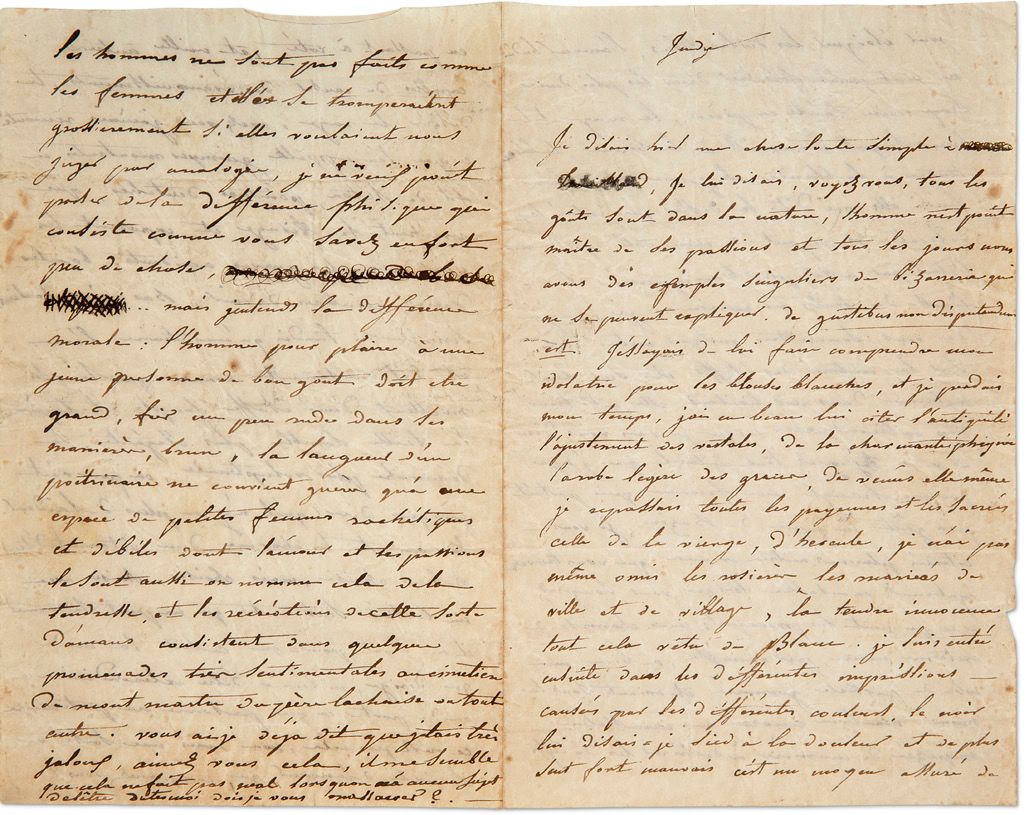 les hommes ne sont pas faits comme
les femmes et elles se tromperaient
grossierement si elles voulaient nous
juger par analogie, je ne veux point
parler de la différence phisique qui
consiste comme vous savez en fort
peu de chose,
... mais j'entends la différence
morale : l'homme pour plaire à une
jeune personne de bon gout doit etre
grand, fier un peu rude dans ses
manières, brun, la langueur d'un
poitrinaire ne convient guere qu'à une
espece de petites femmes rachétiques
et débiles dont l'amour et les passions
le sont aussi on nomme cela de la
tendresse, et les récréations de cette sorte
d'amans consistent dans quelque
promenades très sentimentales au cimetiere
de mont martre du père lachaise ou tout
autre. vous ai-je déjà dit que j'étais très
jaloux, aimez vous cela, il me semble
que cela ne fait pas mal lorsqu'on n'a aucun sujet
de l'être dites moi dois je vous ? —
Jeudi
Je disais hier une chose toute simple à
, Je lui disais, voyez vous, tous les
goûts sont dans la nature, l'homme n'est point
maître de ses passions et tous les jours nous
avons des exemples singuliers de bizarrerie qui
ne se peuvent expliquer. de gustibus non disputendum
est. J'essayais de lui faire comprendre mon
idolatrie pour les blouses blanches, et je perdais
mon temps, j'ai eu beau lui citer l'antiquité
l'ajustement des vestales, de la charmante phrynée
la robe légère des graces, de vénus elle même
je repassais toutes les payennes et les sacrées
celle de la vierge, d'hercule, je n'ai pas
même omis les rosières les mariées de
ville et de village, la tendre innocence
tout cela vetu de Blanc. je suis entré
ensuite dans les différentes impressions —
causées par les différentes couleurs, le noir
lui disais-je sied à la douleur et de plus
sent fort mauvais c'est un moyen assuré de